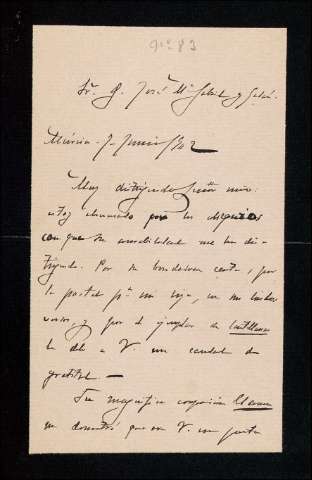 nº 83
Sr. D. José Mª Gabriel y Galán.
Murcia - 7 - Junio /902
Muy distinguido Señor mio:
estoy abrumado por los obsequios
con que su amabilidad me ha dis-
tinguido. Por su bondadosa carta, por
la postal pª mi hija, con sus lindos
versos, y por el ejemplar de Castellanas
le debo a V. un caudal de
gratitud. —
Su magnífica composición
me demostró que en V. un poeta